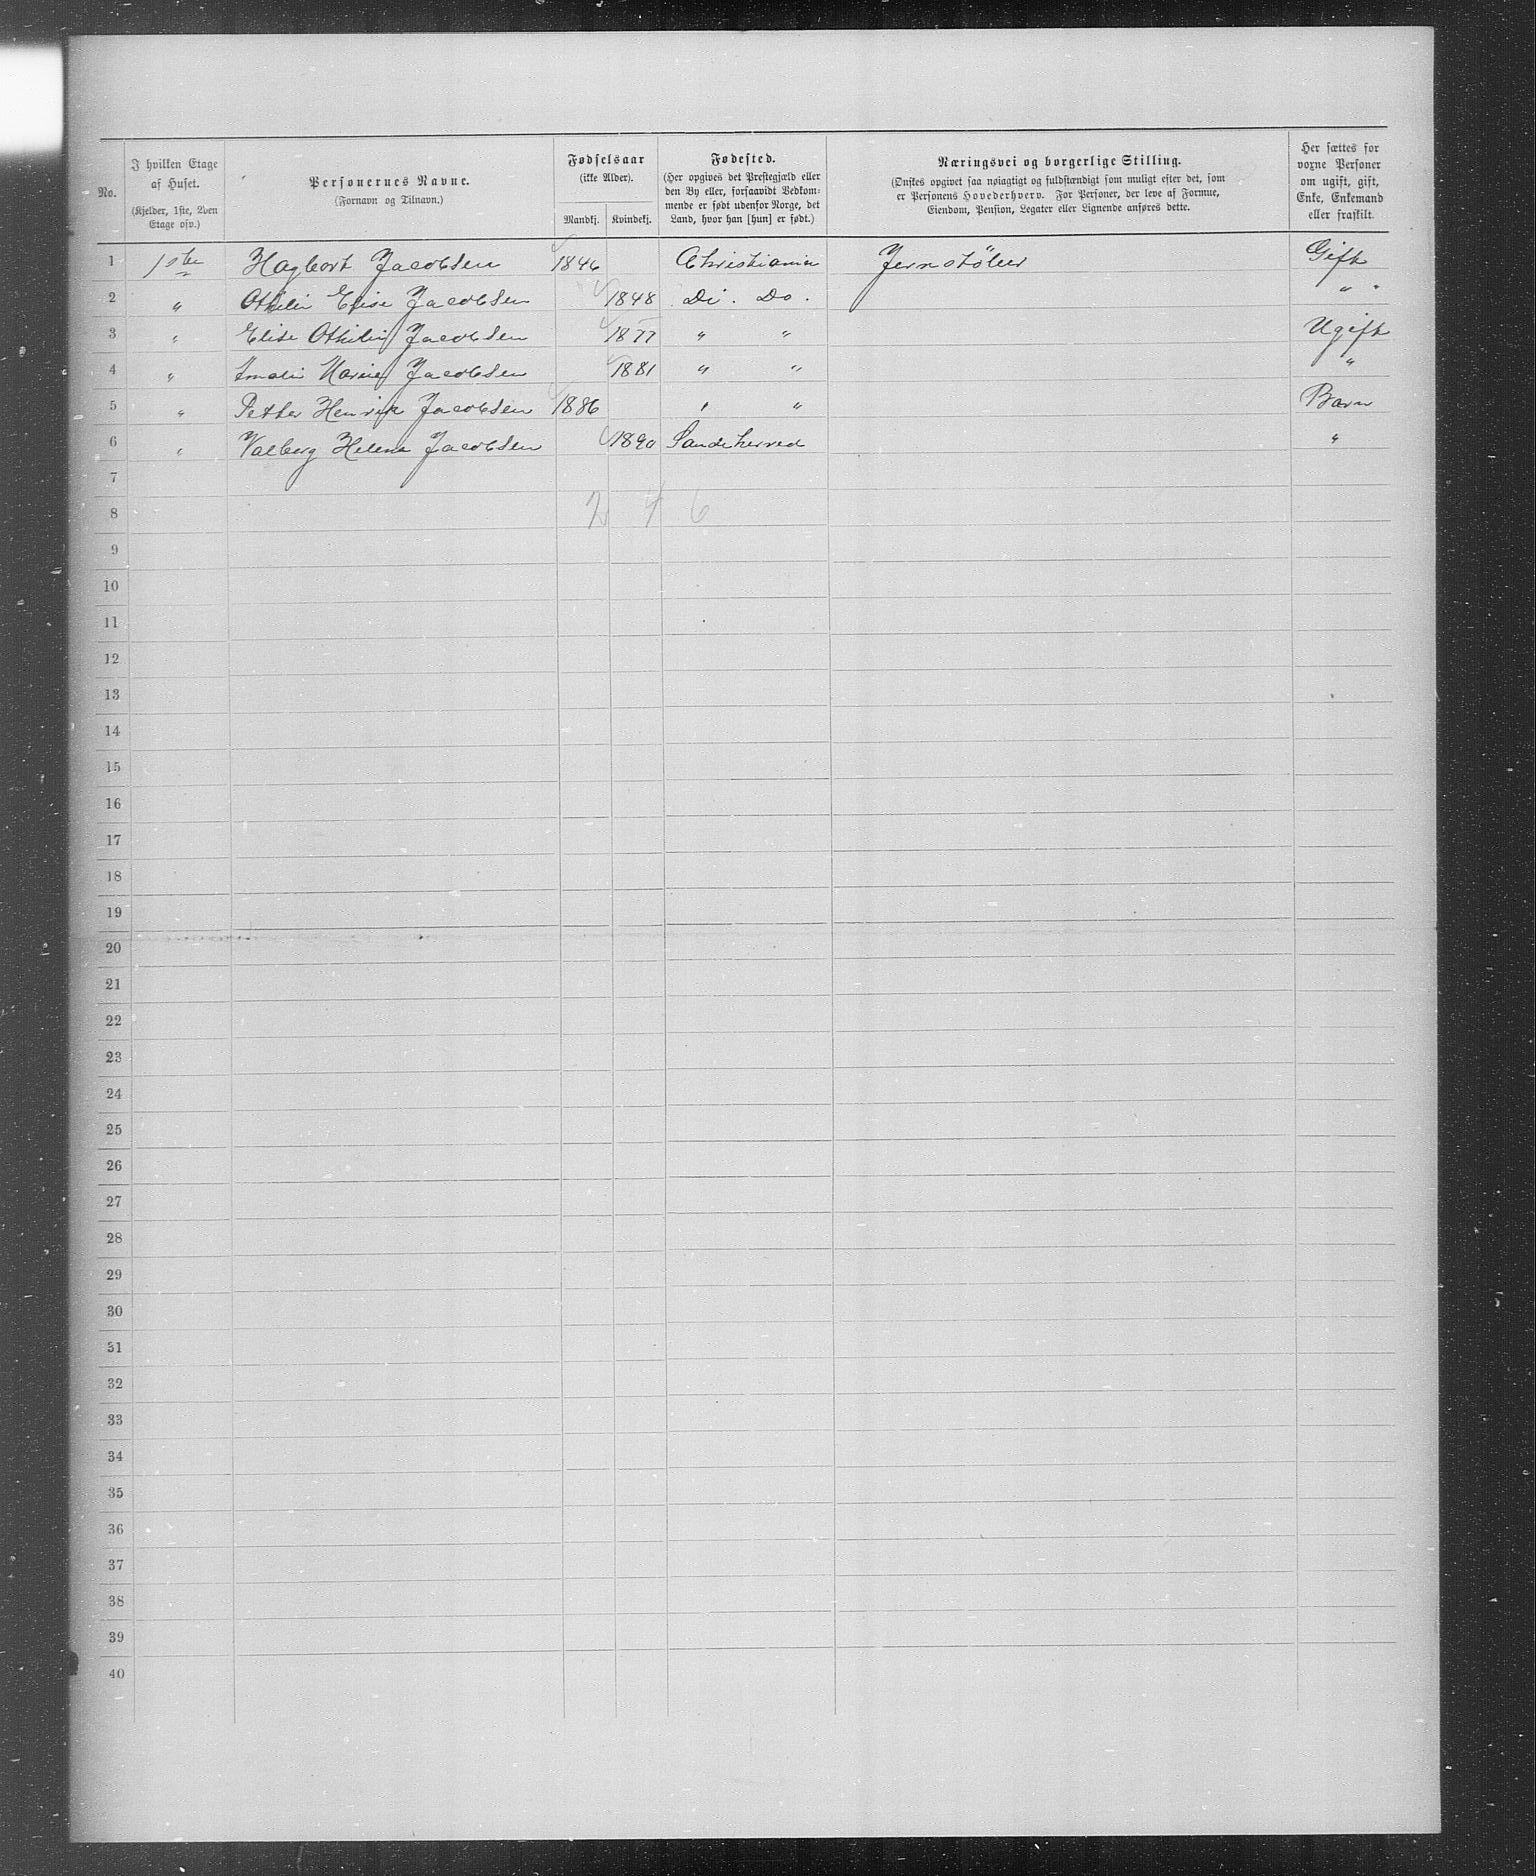 No. | I hvilken Etage af Huset. (Kjelder, 1ste, 2den Etage osv.) | Personernes Navne. (Fornavn og Tilnavn.) | Fødselsaar (ikke Alder). Mandkj. | Kvindekj. | Fødested. (Her opgives det Prestegjæld eller den By eller, forsaavidt Vedkommende er født udenfor Norge, det Land, hvor han [hun] er født.) | Næringsvei og borgerlige Stilling. (Ønskes opgivet saa nøiagtigt og fuldstændigt som muligt efter det, som er Personens Hovederhverv. For Personer, der leve af Formue, Eiendom, Pension, Legater eller Lignende anføres dette.) | Her sættes for voxne Personer om ugift, gift, Enke, Enkemand eller fraskilt.
1 | 1ste | Hagbart Jacobsen | 1846 | | Christiania | Jernstöber | Gift
2 | " | Othilie Elise Jacobsen | | 1848 | Di. Do. | | " "
3 | " | Elise Othilie Jacobsen | | 1877 | " " | | Ugift
4 | " | Amalie Marie Jacobsen | | 1881 | " " | | "
5 | " | Petter Henrik Jacobsen | 1886 | | " " | | Barn
6 | " | Valborg Helene Jacobsen | | 1890 | Sandeherred | | "
7
8 | | | 2 | 4 | 6
9
10
11
12
13
14
15
16
17
18
19
20
21
22
23
24
25
26
27
28
29
30
31
32
33
34
35
36
37
38
39
40